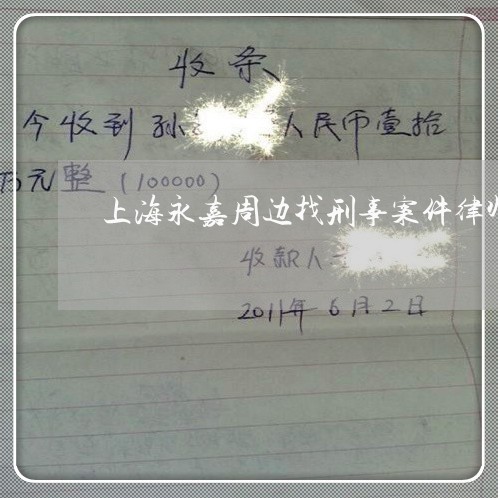 收条
今收到孙 人民币壹拾
万元整（100000）
上海永嘉周边找刑事案件律
收款人
2011年6月2日